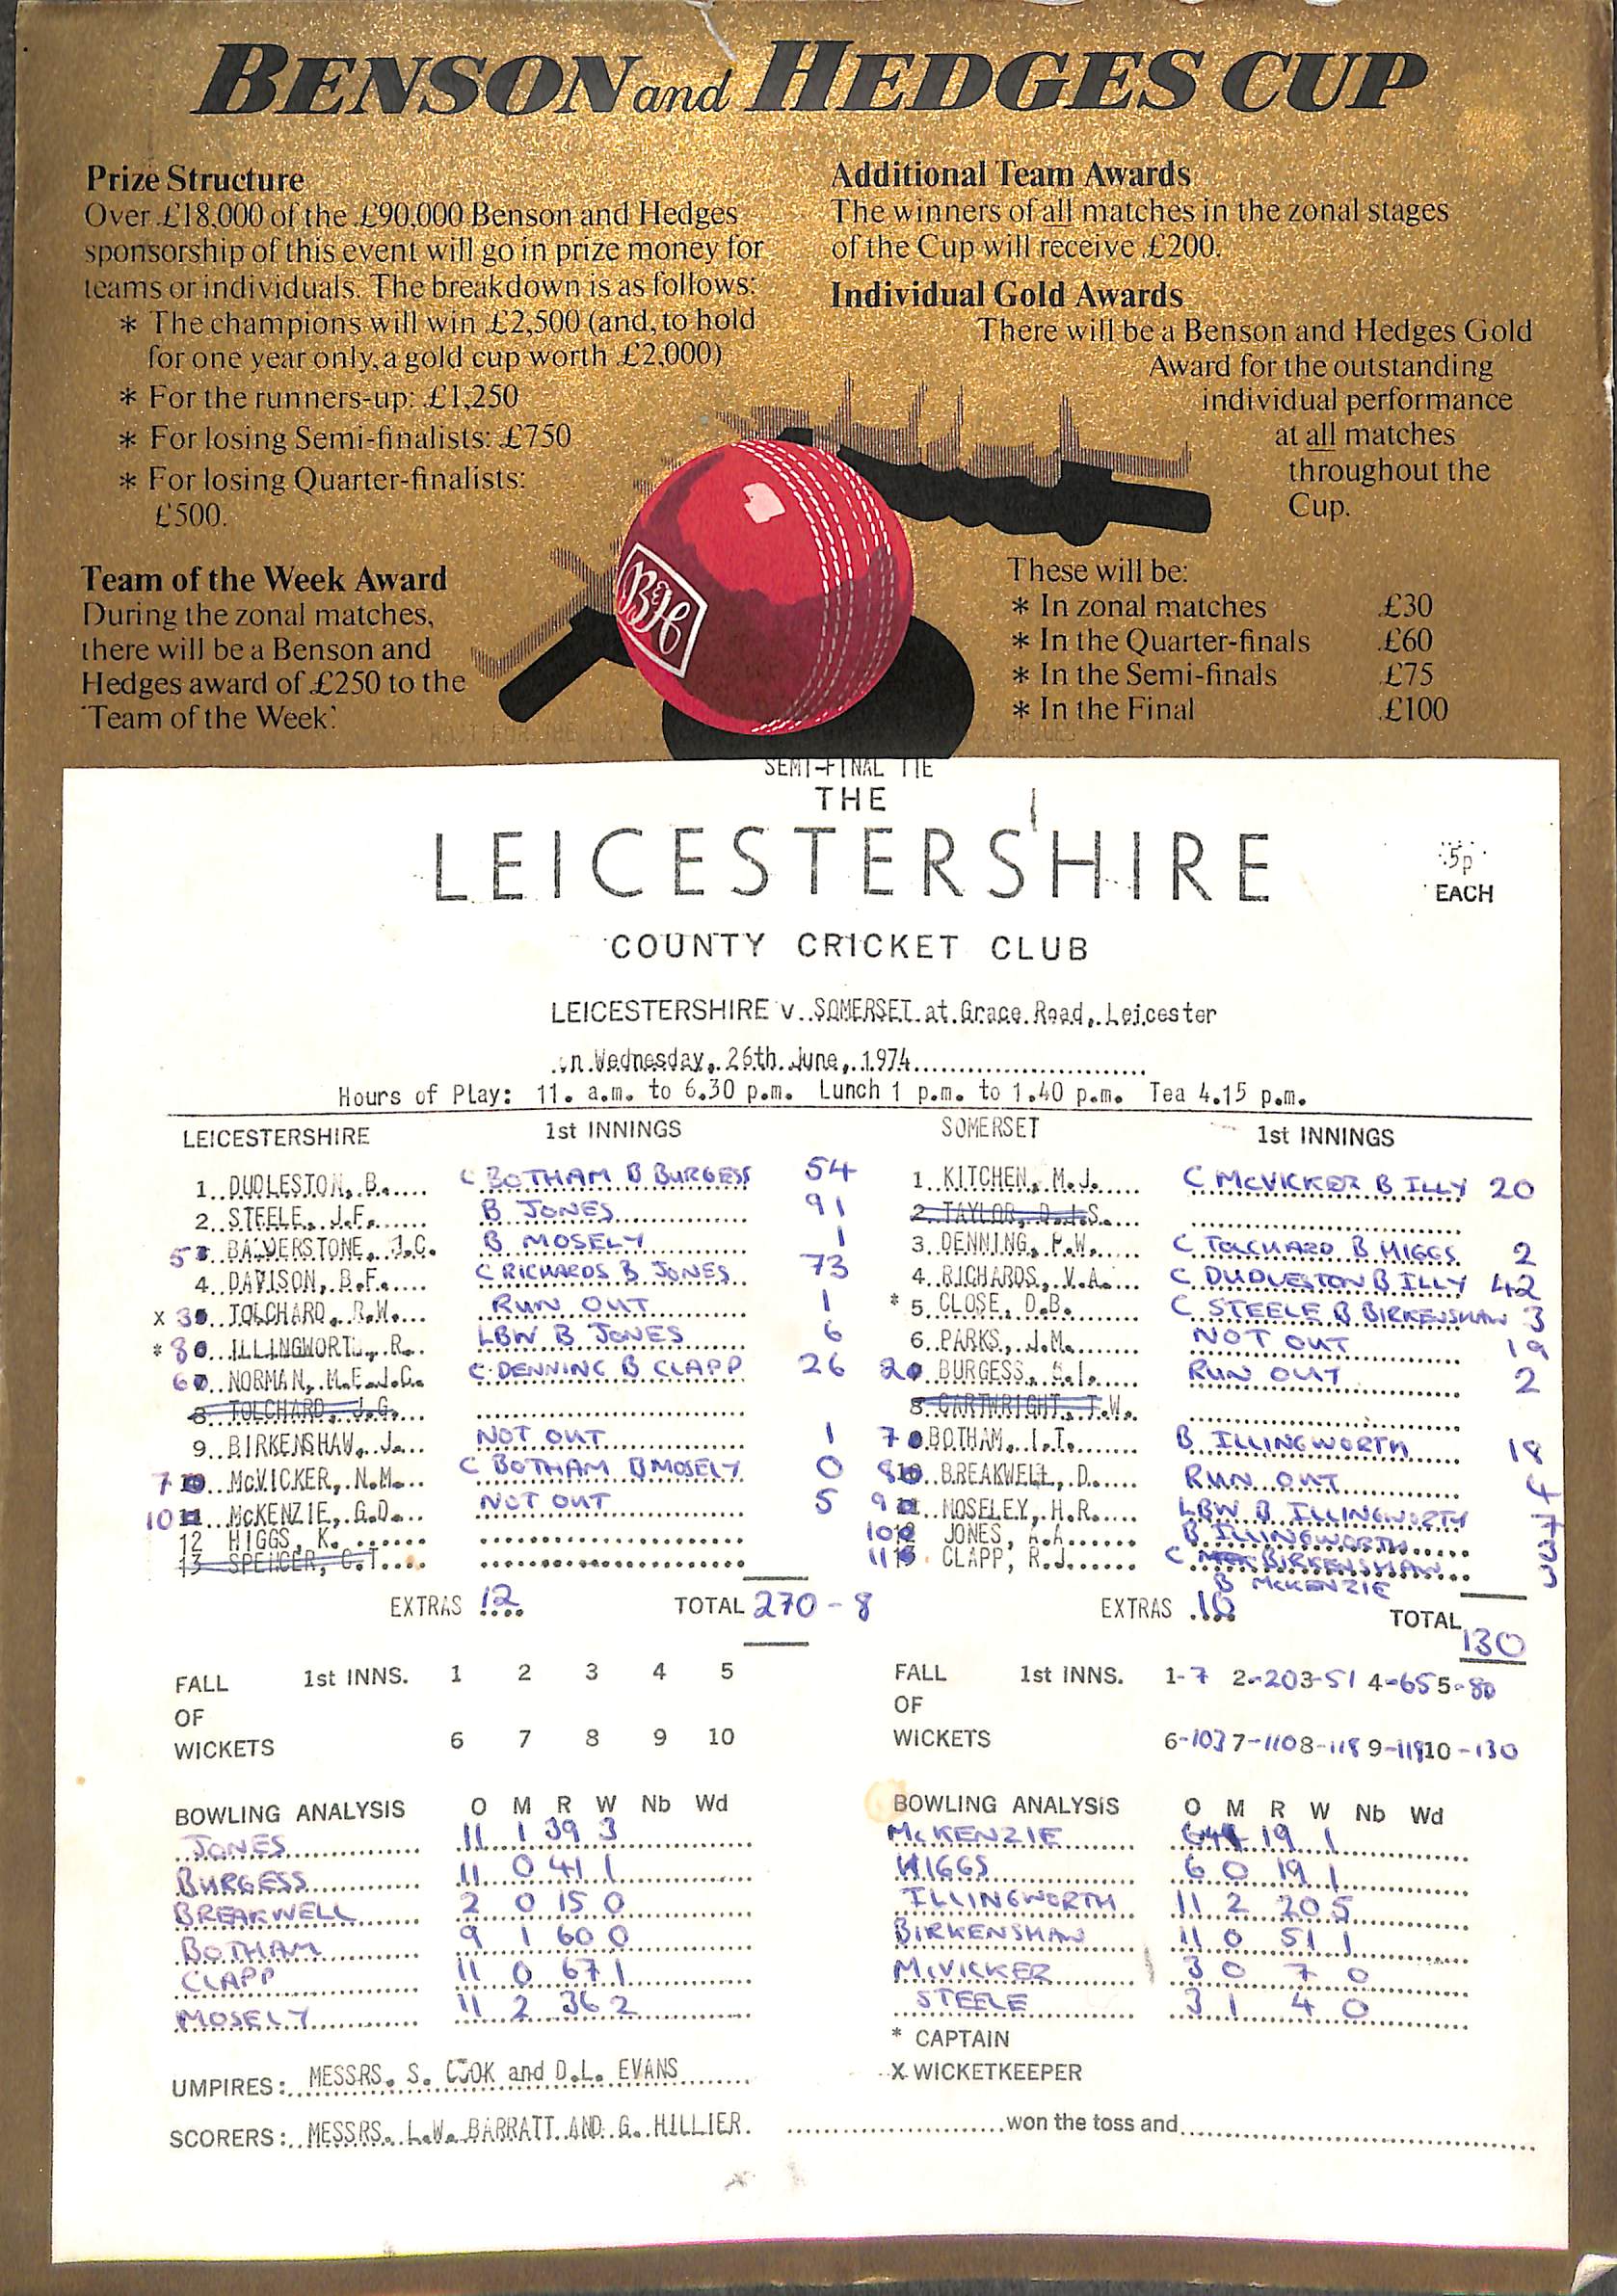 BENSON and HEDGES CUP
Prize Structure
Over £18,000 of the £90,000 Benson and Hedges
sponsorship of this event will go in prize money for
teams or individuals. The breakdown is as follows:
* The champions will win £2,500 (and, to hold
for one year only, a gold cup worth £2,000)
* For the runners-up: £1,250
* For losing Semi-finalists: £750
* For losing Quarter-finalists:
£500.
Team of the Week Award
During the zonal matches,
there will be a Benson and
Hedges award of £250 to the
'Team of the Week'.
Additional Team Awards
The winners of all matches in the zonal stages
of the Cup will receive £200.
Individual Gold Awards
There will be a Benson and Hedges Gold
Award for the outstanding
individual performance
at all matches
throughout the
Cup.
These will be:
* In zonal matches £30
* In the Quarter-finals £60
* In the Semi-finals £75
* In the Final £100
B&H
SEMI-FINAL TIE
THE
LEICESTERSHIRE
5p
EACH
COUNTY CRICKET CLUB
LEICESTERSHIRE v. SOMERSET at Grace Road, Leicester
on Wednesday, 26th June, 1974
Hours of Play: 11. a.m. to 6.30 p.m. Lunch 1 p.m. to 1.40 p.m. Tea 4.15 p.m.
LEICESTERSHIRE 1st INNINGS
1 DUDLESTON, B. C BOTHAM B BURGESS 54
2 STEELE, J.F. B JONES 91
5 BALDERSTONE, J.C. B MOSELY 1
4 DAVISON, B.F. C RICHARDS B JONES 73
X 3 TOLCHARD, R.W. RUN OUT 1
* 8 ILLINGWORTH, R. LBW B JONES 6
6 NORMAN, M.E.J.C. C DENNING B CLAPP 26
8 TOLCHARD, J.G.
9 BIRKENSHAW, J. NOT OUT 1
7 McVICKER, N.M. C BOTHAM B MOSELY 0
10 McKENZIE, G.D. NOT OUT 5
12 HIGGS, K.
13 SPENCER, C.T.
EXTRAS 12 TOTAL 270-8
SOMERSET 1st INNINGS
1 KITCHEN, M.J. C MCVICKER B ILLY 20
2 TAYLOR, D.J.S.
3 DENNING, P.W. C TOLCHARD B HIGGS 2
4 RICHARDS, V.A. C DUDLESTON B ILLY 42
* 5 CLOSE, D.B. C STEELE B BIRKENSHAW 3
6 PARKS, J.M. NOT OUT 19
2 BURGESS, G.I. RUN OUT 2
8 CARTWRIGHT, T.W.
7 BOTHAM, I.T. B ILLINGWORTH 18
8 BREAKWELL, D. RUN OUT 4
9 MOSELEY, H.R. LBW B ILLINGWORTH 7
10 JONES, A.A. B ILLINGWORTH 3
11 CLAPP, R.J. C BIRKENSHAW
B MCKENZIE
EXTRAS 10 TOTAL
130
FALL 1st INNS. 1 2 3 4 5
OF
WICKETS 6 7 8 9 10
FALL 1st INNS. 1-7 2-20 3-51 4-65 5-80
OF
WICKETS 6-103 7-110 8-118 9-119 10-130
BOWLING ANALYSIS O M R W Nb Wd
JONES 11 1 39 3
BURGESS 11 0 41 1
BREAKWELL 2 0 15 0
BOTHAM 9 1 60 0
CLAPP 11 0 67 1
MOSELY 11 2 36 2
BOWLING ANALYSIS O M R W Nb Wd
MCKENZIE 19 1
HIGGS 6 0 19 1
ILLINGWORTH 11 2 20 5
BIRKENSHAW 11 0 51 1
MCVICKER 3 0 7 0
STEELE 3 1 4 0
* CAPTAIN
X WICKETKEEPER
UMPIRES: MESSRS. S. COOK and D.L. EVANS
SCORERS: MESSRS. L.W. BARRATT AND G. HILLIER.
won the toss and